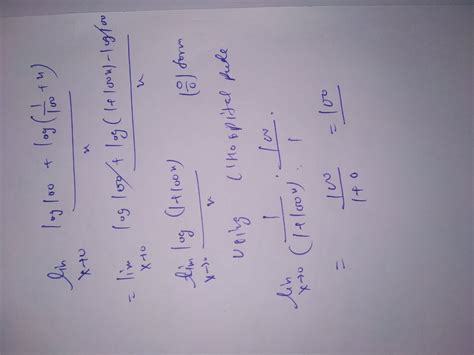 lim x→0 (log 100 + log(1/100 + x)) / x
= lim x→0 (log 100 + log(1+100x) - log 100) / x
lim x→0 log(1+100x) / x (0/0) form
using L'Hospital rule
lim x→0 1/(1+100x) · 100/1
= 100/(1+0) = 100